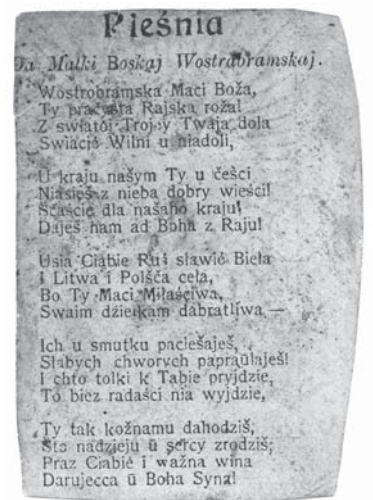 Pieśnia
Da Matki Boskaj Wostrabramskaj.
Wostrobramska Maci Boża,
Ty praćysta Rajska roża!
Z swiatoj Trojcy Twaja dola
Swiacić Wilni u niadoli,
U kraju našym Ty u ćeści
Niasieš z nieba dobry wieści!
Sčaście dla našaho kraju!
Daješ nam ad Boha z Raju!
Usia Ciabie Ruś sławić Bieła
I Litwa i Polšča ceła,
Bo Ty Maci Miłaściwa,
Swaim dzietkam dabratliwa —
Ich u smutku paciešaješ,
Słabych chworych papraŭlaješ!
I chto tolki k Tabie pryjdzie,
To biez radaści nia wyjdzie,
Ty tak kožnamu dahodziš,
Što nadzieju ŭ sercy zrodziš;
Praz Ciabie i ważna wina
Darujecca ŭ Boha Syna!